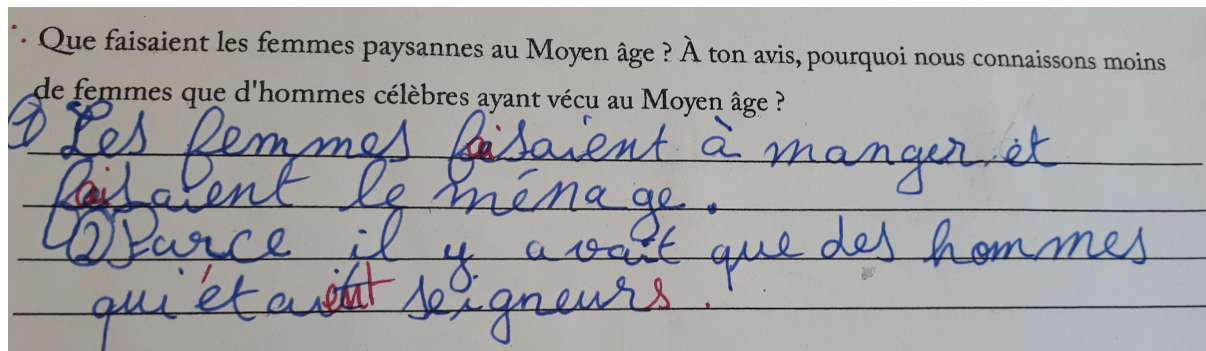 Que faisaient les femmes paysannes au Moyen âge ? À ton avis, pourquoi nous connaissons moins
de femmes que d'hommes célèbres ayant vécu au Moyen âge ?
① Les femmes faisaient à manger et
faisaient le ménage.
② Parce il y avait que des hommes
qui étaient seigneurs.